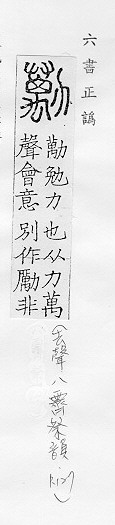 六書正譌
勱
勱勉力也从力萬
聲會意別作勵非
(去聲八霽祭韻